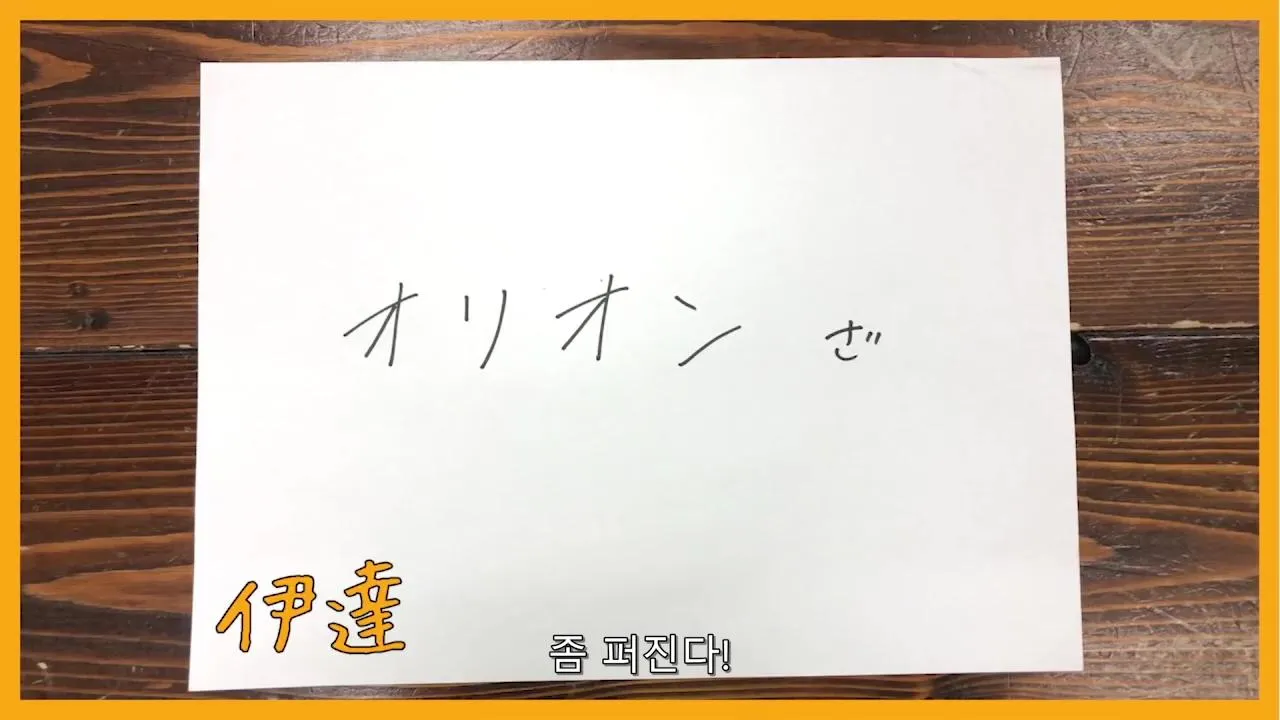 オリオン ざ
伊達
좀 퍼진다!